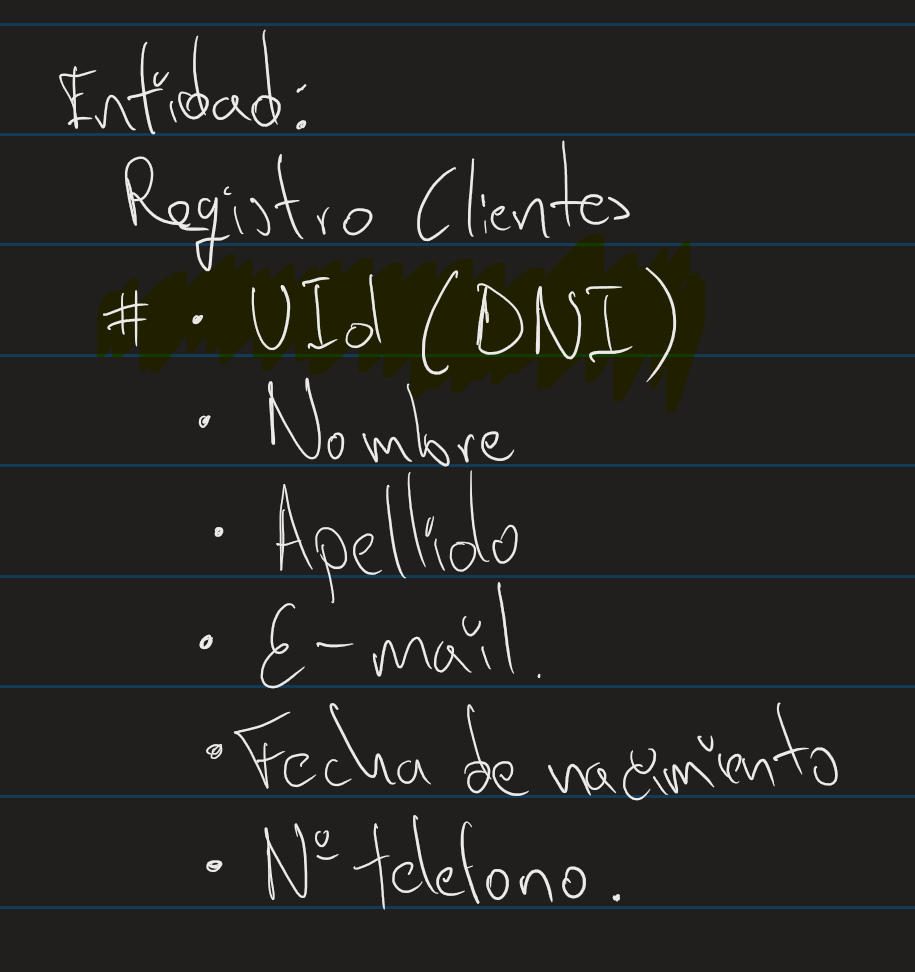 Entidad:
Registro Clientes
# · UId (DNI)
· Nombre
· Apellido
· E-mail.
· Fecha de nacimiento
· Nº telefono.